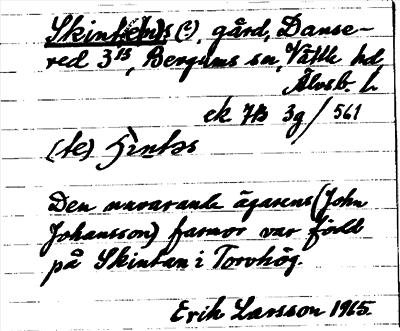 Skintes (c), gård, Danse-
red 3¹³, Bergums sn, Vättle hd,
Älvsb. l.
ek 7B 3g/561
(te)
Den nuvarande ägarens (John
Johansson) farmor var född
på Skintan i Torvhög.
Erik Larsson 1965.